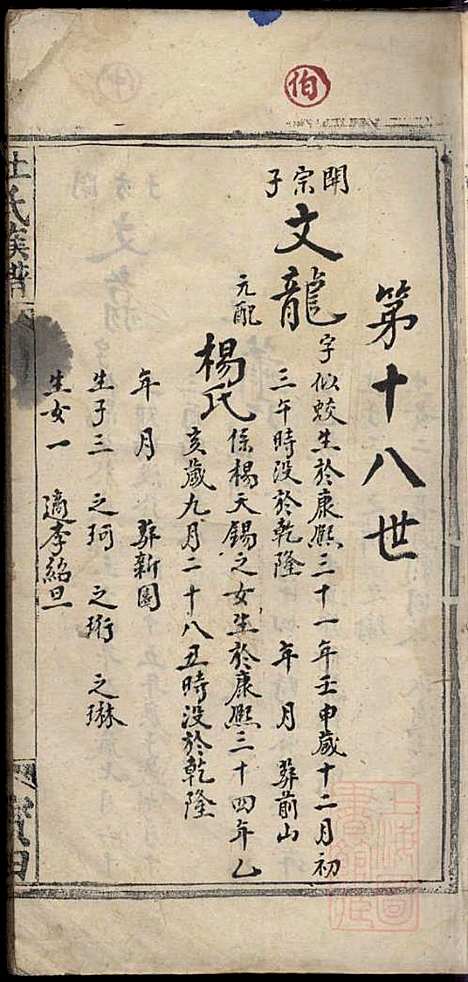 伯
第十八世
開宗子
文龍
字似蛟生於康熙三十一年壬申歲十二月初
三午時没於乾隆　年　月　葬前山
元配
楊氏
係楊天錫之女生於康熙三十四年乙
亥歲九月二十八丑時没於乾隆
年　月　葬新園
生子三　之珂　之珩　之琳
生女一　適李紹旦
氏族譜